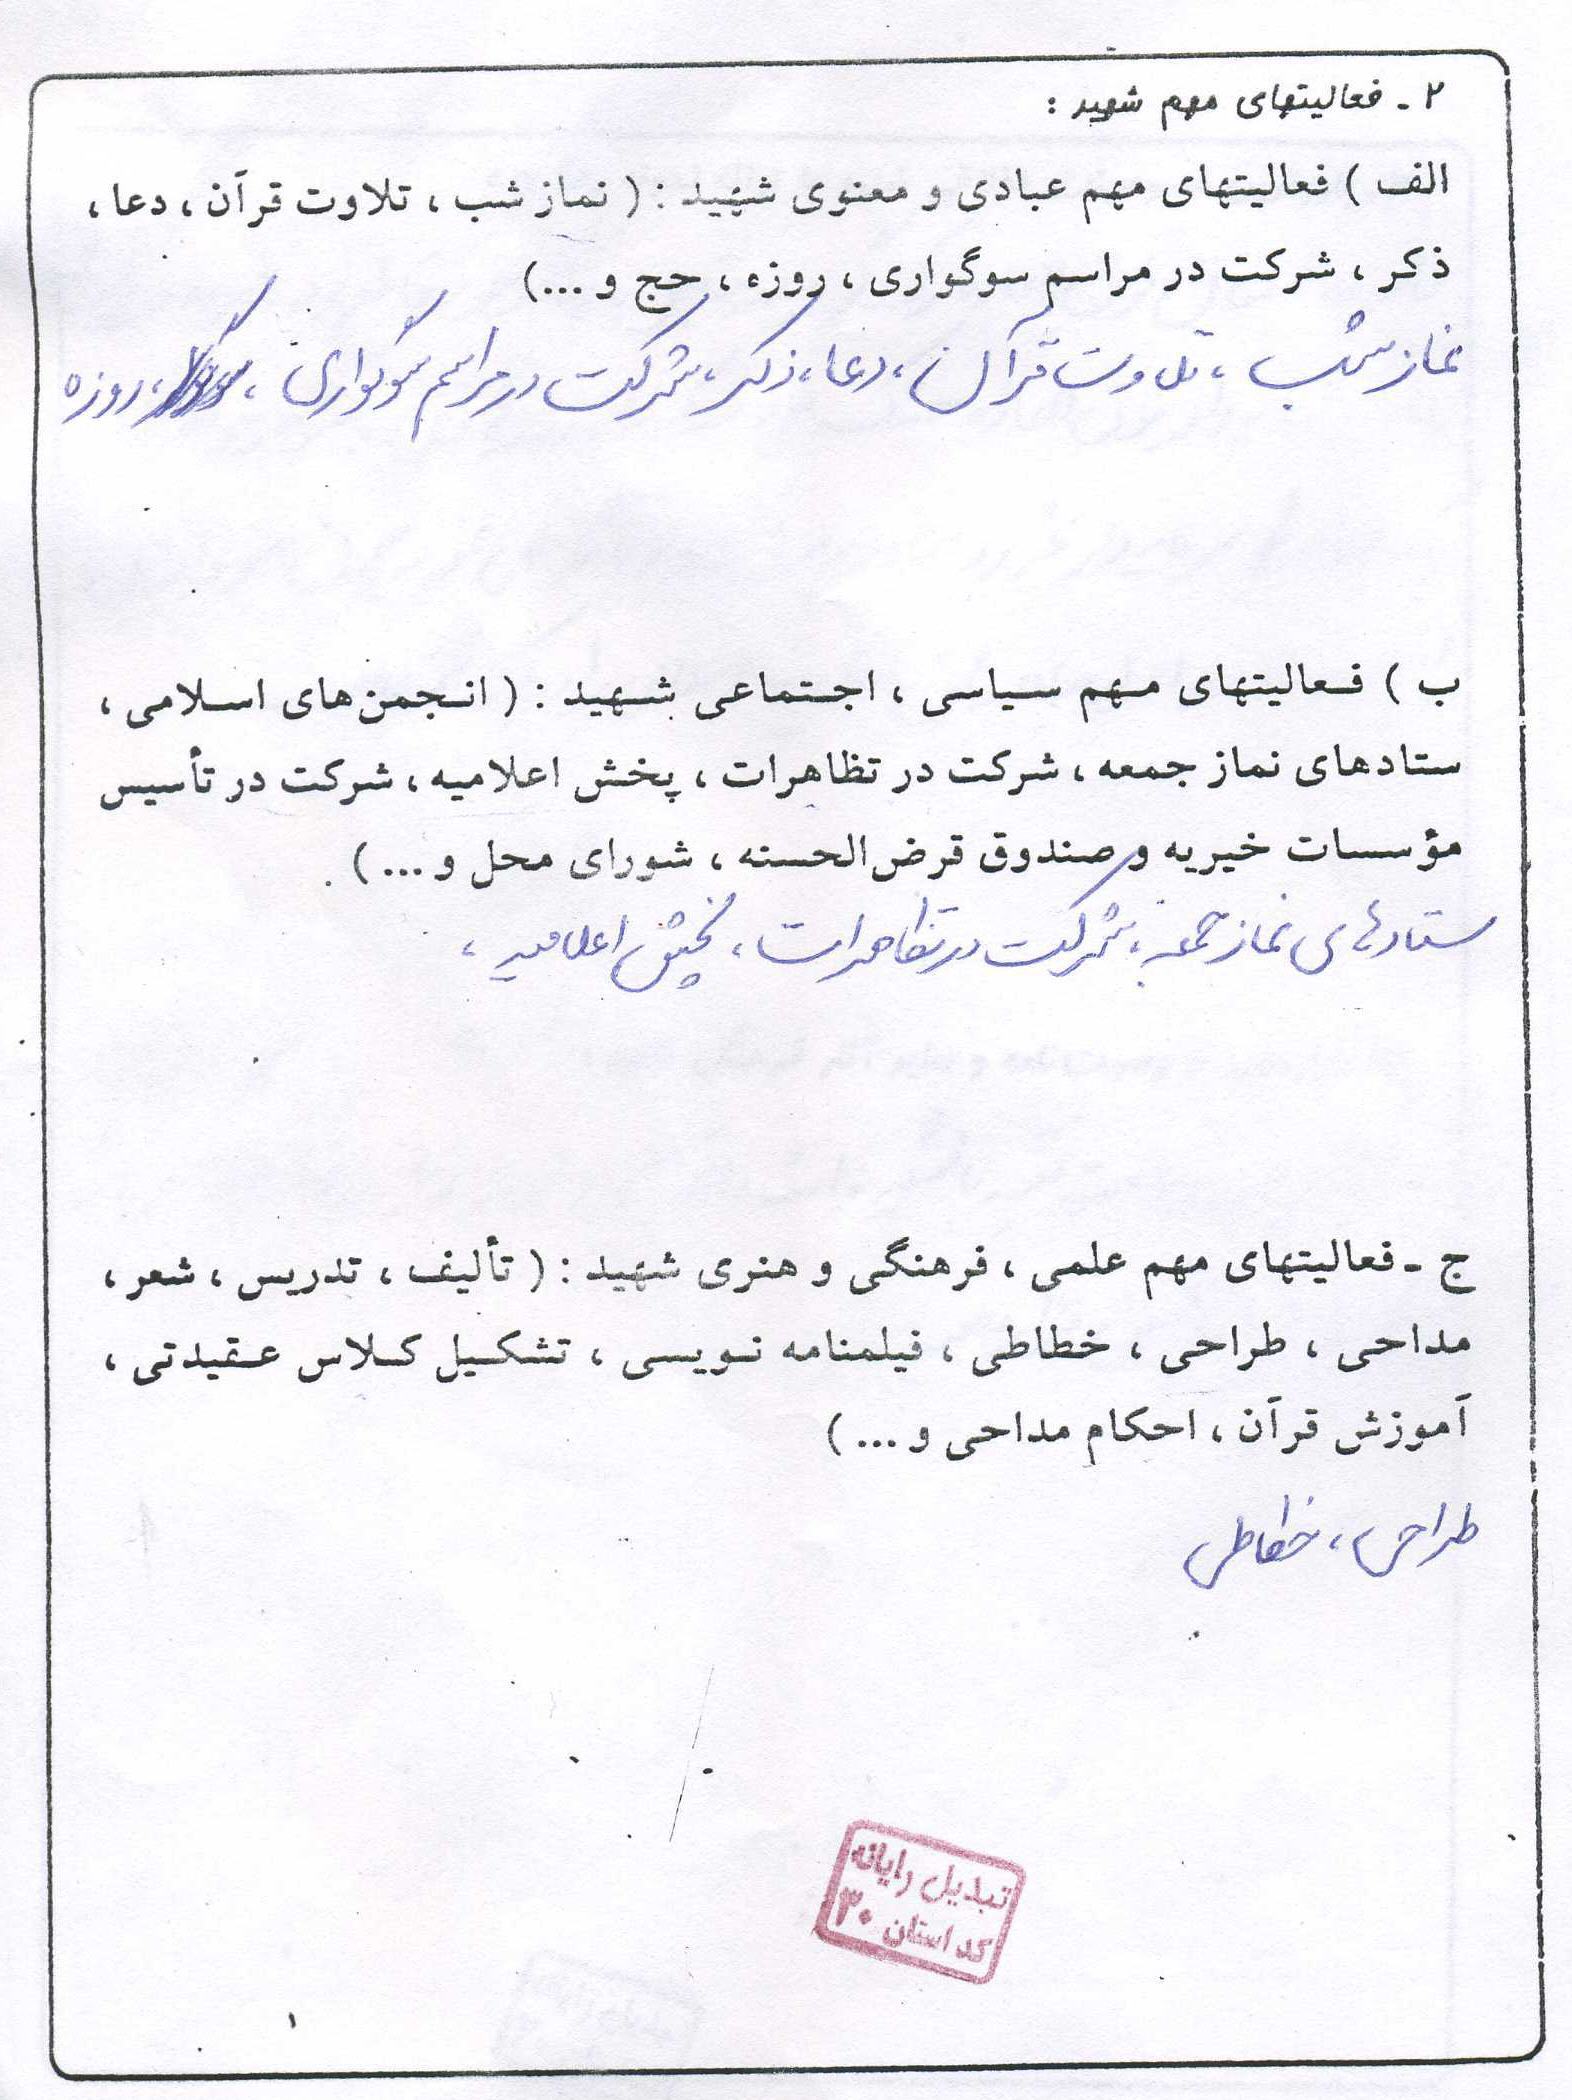 ۲ - فعالیتهای مهم شهید :
الف ) فعالیتهای مهم عبادی و معنوی شهید : ( نماز شب ، تلاوت قرآن ، دعا ،
ذکر ، شرکت در مراسم سوگواری ، روزه ، حج و ...)
نماز شب ، تلاوت قرآن ، دعا ، ذکر ، شرکت در مراسم سوگواری ، روزه
ب ) فعالیتهای مهم سیاسی ، اجتماعی شهید : ( انجمن‌های اسلامی ،
ستادهای نماز جمعه ، شرکت در تظاهرات ، پخش اعلامیه ، شرکت در تأسیس
مؤسسات خیریه و صندوق قرض‌الحسنه ، شورای محل و ... )
ستادهای نماز جمعه ، شرکت در تظاهرات ، پخش اعلامیه ،
ج - فعالیتهای مهم علمی ، فرهنگی و هنری شهید : ( تألیف ، تدریس ، شعر ،
مداحی ، طراحی ، خطاطی ، فیلمنامه نویسی ، تشکیل کلاس عقیدتی ،
آموزش قرآن ، احکام مداحی و ... )
طراحی ، خطاطی
تبدیل رایانه
کد استان ۳۰
۱